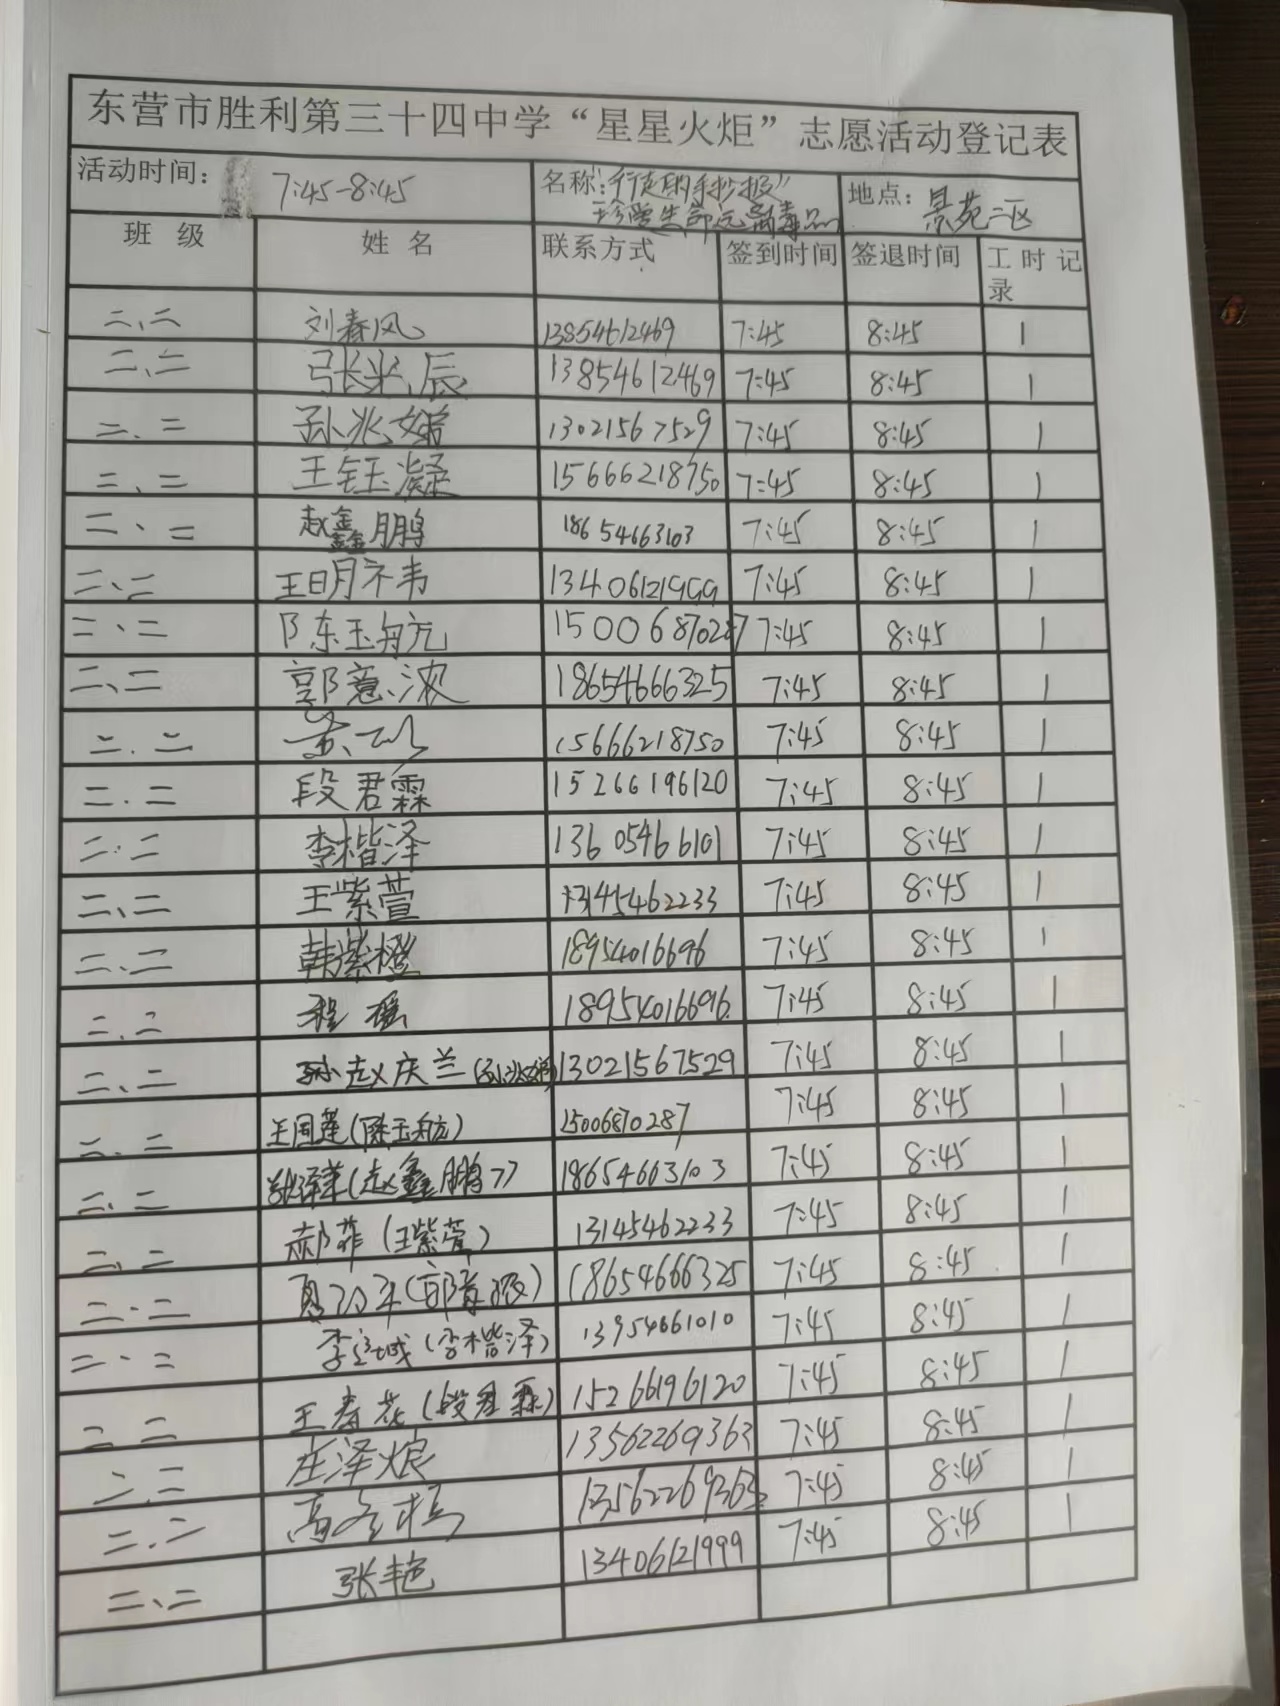 东营市胜利第三十四中学“星星火炬”志愿活动登记表
活动时间： 7:45-8:45 名称：“行走的手抄报” 珍爱生命远离毒品 地点：景苑二区
班 级 姓 名 联系方式 签到时间 签退时间 工时记录
二、二 刘春风 13854612469 7:45 8:45 1
二、二 张米辰 13854612469 7:45 8:45 1
二、二 孙兆婻 13021567529 7:45 8:45 1
二、二 王钰凝 15666218750 7:45 8:45 1
二、二 赵鑫鹏 18654663103 7:45 8:45 1
二、二 王明祎 13406121999 7:45 8:45 1
二、二 陈玉航 15006870287 7:45 8:45 1
二、二 郭意浓 18654666325 7:45 8:45 1
二、二 15666218750 7:45 8:45 1
二、二 段君霖 15266196120 7:45 8:45 1
二、二 李楷泽 13605466101 7:45 8:45 1
二、二 王紫萱 13145462233 7:45 8:45 1
二、二 韩紫橙 18954016696 7:45 8:45 1
二、二 程 18954016696 7:45 8:45 1
二、二 赵庆兰 13021567529 7:45 8:45 1
二、二 王同莲（陈玉航） 15006870287 7:45 8:45 1
二、二 （赵鑫鹏） 18654663103 7:45 8:45 1
二、二 郝菲（王紫萱） 13145462233 7:45 8:45 1
二、二 （郭意浓） 18654666325 7:45 8:45 1
二、二 （李楷泽） 13954661010 7:45 8:45 1
二、二 王春花（段君霖） 15266196120 7:45 8:45 1
二、二 庄泽烺 13562269363 7:45 8:45 1
二、二 高 13562269363 7:45 8:45 1
二、二 张艳 13406121999 7:45 8:45 1